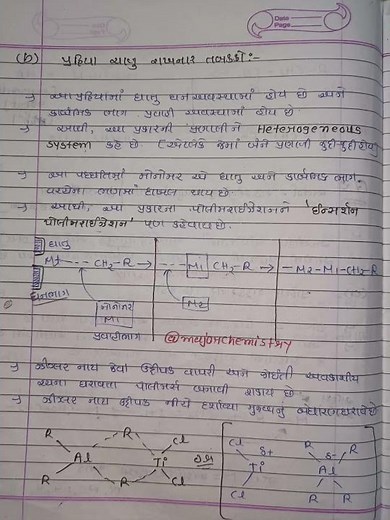 Date
Page
(b) પ્રક્રિયા ધાતુ
→ આ પ્રક્રિયામાં ધાતુ ઘન અવસ્થામાં હોય છે અને
કાર્બનિક ભાગ પ્રવાહી અવસ્થામાં હોય છે
→ આથી, આ પ્રકારની પ્રણાલીને Heterogeneous
system કહે છે.
→ આ પદ્ધતિમાં મોનોમર એ ધાતુ અને કાર્બનિક ભાગ-
વચ્ચેના ભાગમાં દાખલ થાય છે.
→ આથી, આ પ્રકારના પોલીમરાઈઝેશનને 'ઈન્સર્શન
પોલીમરાઈઝેશન' પણ કહેવાય છે.
ધાતુ
M+ --- CH2-R → --- M1 CH2-R → -M2-M1-CH2-R
ઘનભાગ
મોનોમર
M1
M2
પ્રવાહીભાગ
@mayjonchemistry
→ ઝીગ્લર નાટા જેવા ઉદ્દીપક વાપરી અને અવકાશીય
રચના ધરાવતા પોલીમર્સ બનાવી શકાય છે.
→ ઝીગ્લર નાટા ઉદ્દીપક નીચે દર્શાવ્યા મુજબનું બંધારણ ધરાવે છે
R R Cl
Al Ti
R R Cl
અથવા
Cl δ+ R δ- R
Ti Al
Cl R R